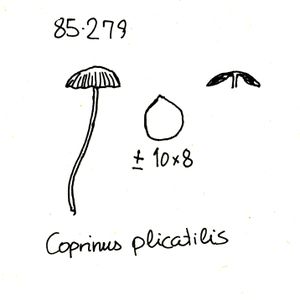 85.279
± 10×8
Coprinus plicatilis